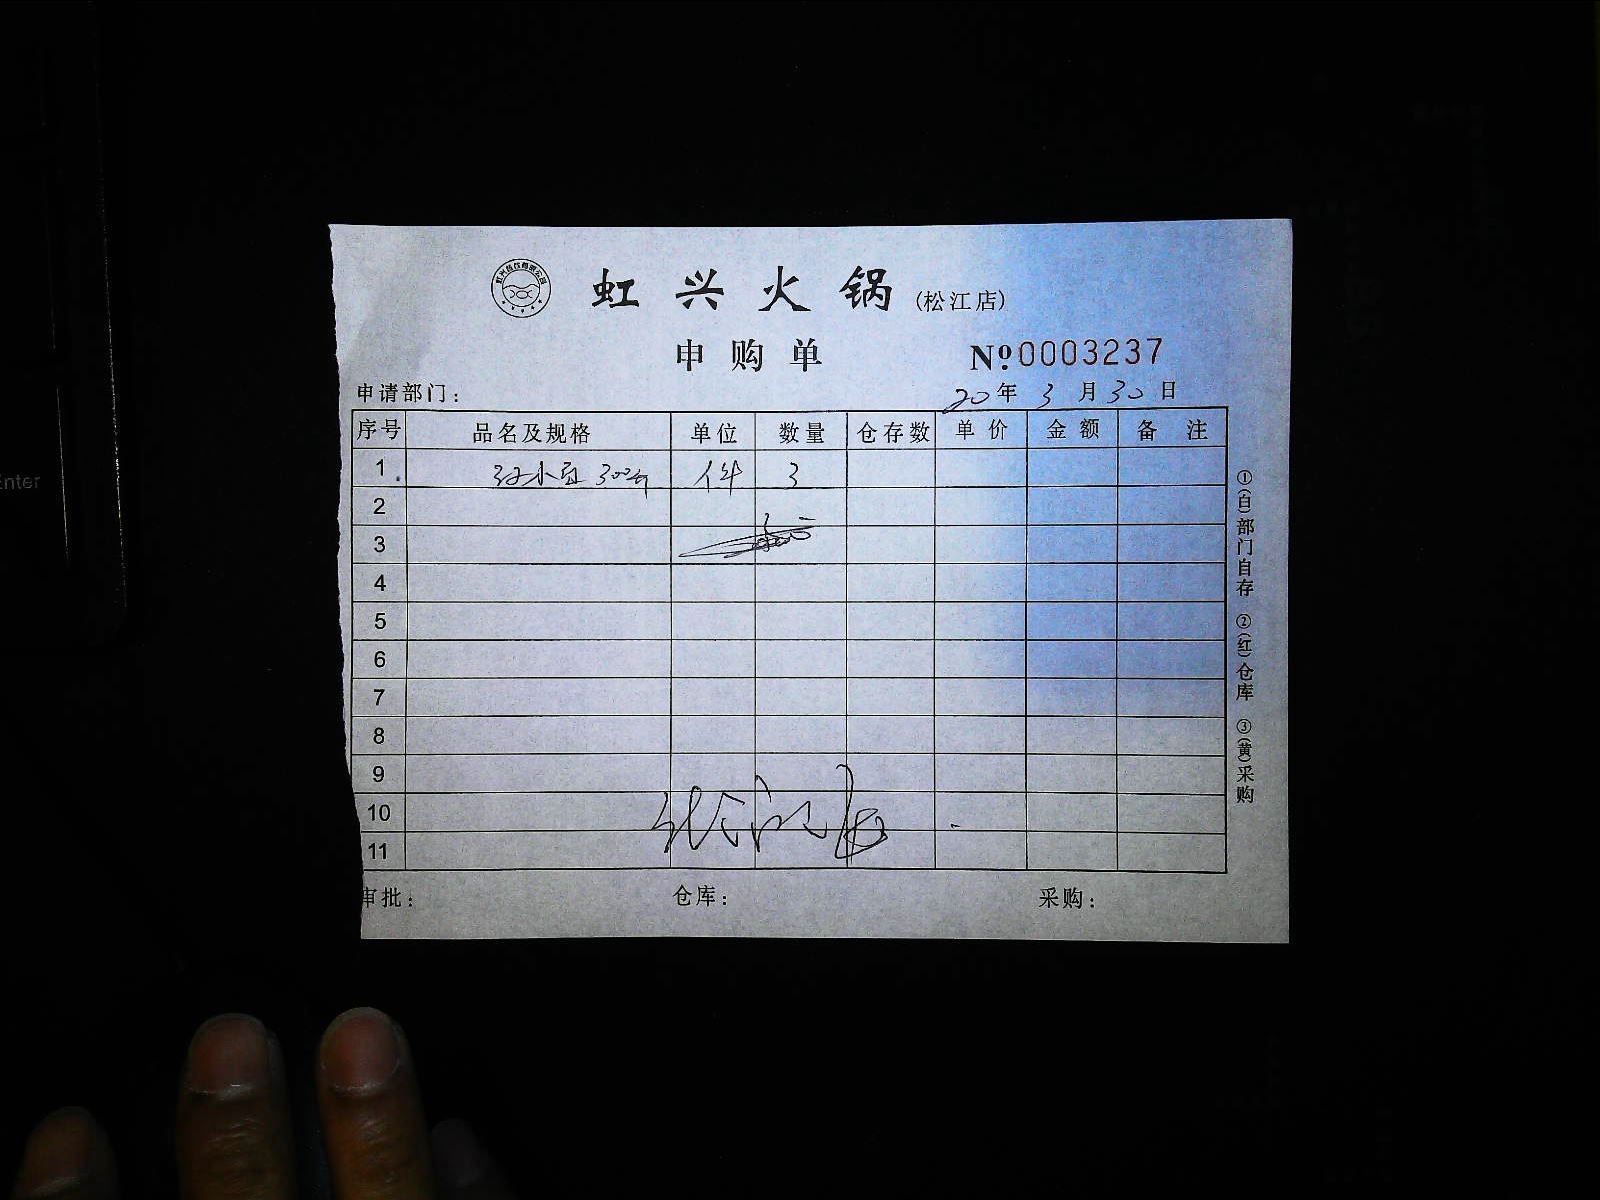 虹兴火锅(松江店)
申购单 №0003237
申请部门: 20年3月30日
序号 品名及规格 单位 数量 仓存数 单价 金额 备注
1 300 件 3
2
3
4
5
6
7
8
9
10
11
审批: 仓库: 采购:
①(白)部门自存 ②(红)仓库 ③(黄)采购
Enter